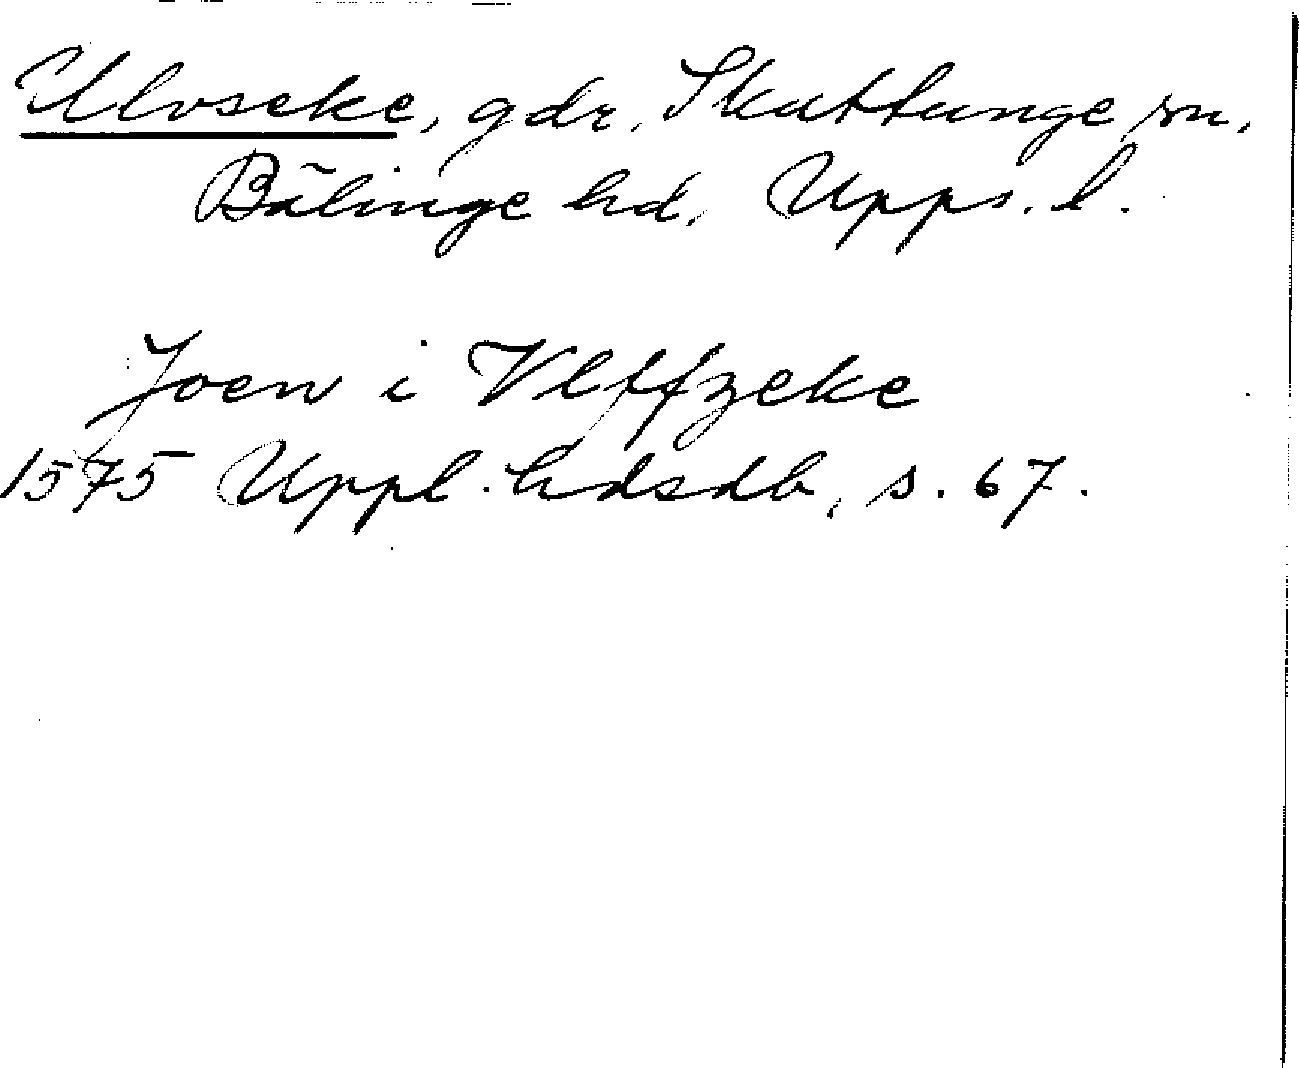 Ulvseke, gdr, Skuttunge sn,
Bälinge hd, Upps. l.
Joen i Vlffzeke
1575 Uppl. hdsdb, s. 67.